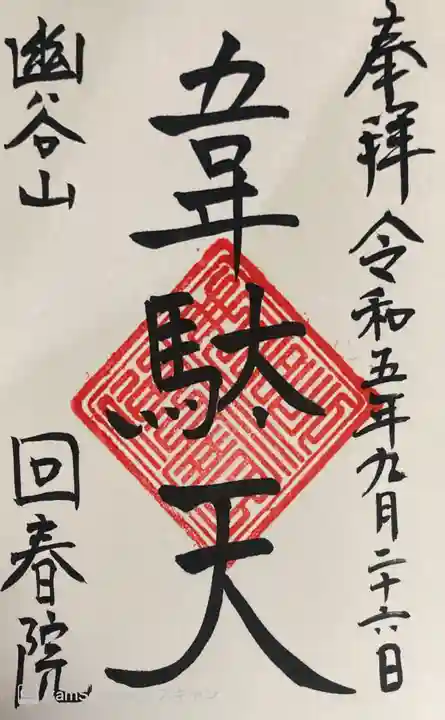 奉拝 令和五年九月二十六日
韋駄天
幽谷山
回春院